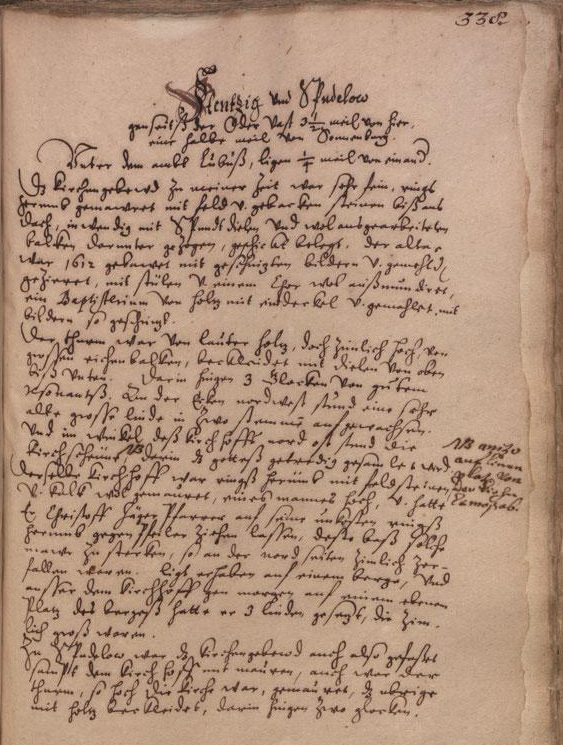 338.
Rentzig und Spudelow
jenseits der Oder vast 3 1/2 meil von hier,
eine halbe meil von Sonnenburg.
Unter dem ambt Lubuß, ligen 1/4 meil von einand.
Dz Kirchengebewd zu meiner Zeit war sehr fein, rings
herumb gemawret mit feld v. gebacken steinen biß ans
dach, inwendig mit Spundt dielen und wol ausgearbeiteten
balken darunter gezogen, belegt. der altar
war 1612 gebawet mit geschnitzten bildern v. gemehld
gezieret, mit stülen v. einem Chor wol außmundiret,
ein Baptisterium von holtz mit eindeckel v. gemahlet mit
bildern so geschnitzt.
Der thurm war von lauter holtz, doch zimlich hoch von
grossen eichen balken, bekleidet mit dielen von oben
biß unten. Darin hingen 3 Glocken von gutem
resonantz. An der Ecken nordwest stund eine sehr
alte grosse linde in zwo stemme ausgewachsen.
Und im winkel deß Kirchhoffs nord ost stund die
Kirchscheune NB darin dz getreidig gesamlet ward.
NB
auff einen
platz von
der Kirche
Derselbe Kirchhoff war rings herumb mit feldsteinen
v. kalk wol gemauret, eines mannes hoch, v. hatte
Er Christoff Jäger Pfarrer auf seine unkosten rings
herumb gegen Pfeiler ziehen lassen, deste baß solche
mawr zu sterken, so an der nord seiten zimlich zer-
fallen waren. ligt erhaben auf einem berge, und
ausser dem Kirchhoff gen morgen auf einem ebenen
Platz des berges hatte er 3 linden gesetzt, die zim-
lich groß waren.
Zu Spudelow war dz Kirchengebewd auch also gefasset
sampt dem Kirchhoff mit mauren, auch war der
thurm, so hoch die Kirche war, gemauret, dz ubrige
mit holtz bekleidet, darin hingen zwo glocken.